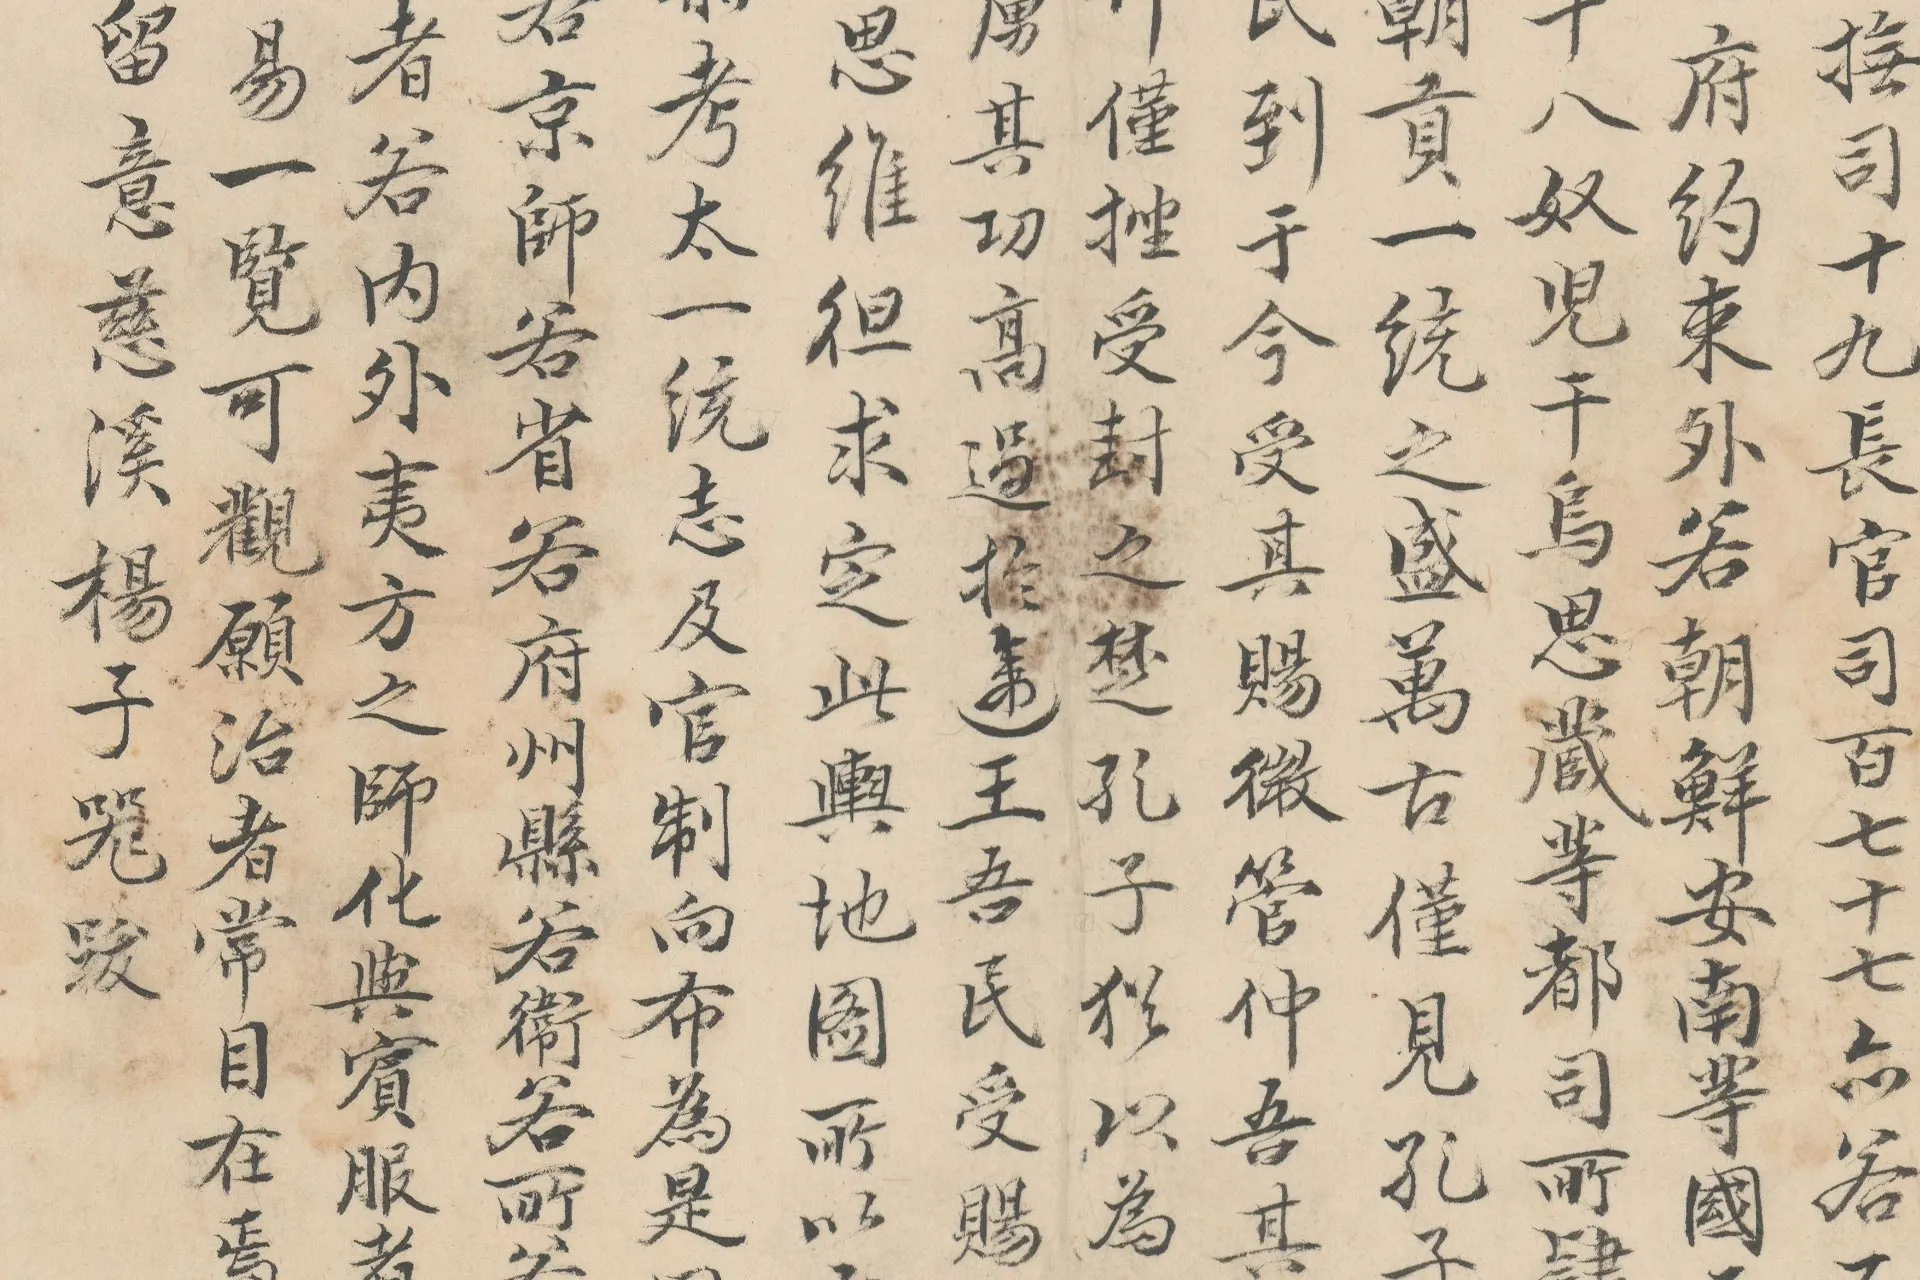 撫司十九長官司百七十七亦各
府約束外若朝鮮安南等國
十八奴児干烏思蔵等都司所肆
朝貢一統之盛萬古僅見孔子
民到于今受其賜微管仲吾其
僅挫受封之楚孔子猶以為
厲其功高過於遠王吾民受賜
思維但求定此輿地圖所以
考太一統志及官制向布為是
若京師若省若府州縣若衛若所若
者若内外夷方之師化與賓服者
易一覧可觀願治者常目在焉
留意慈溪楊子器跋